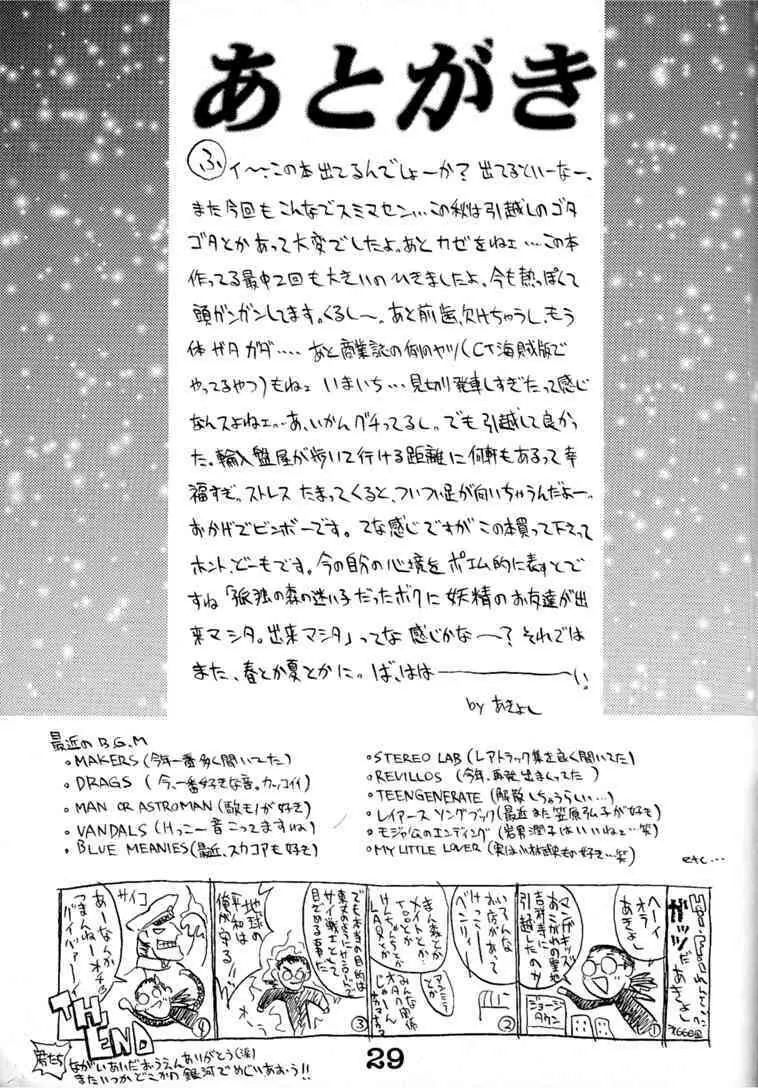 あとがき
ふィ〜、この本出てるんでしょーか？出てるといーなー、
また今回もこんなでスミマセン…この秋は引越しのゴタ
ゴタとかあって大変でしたよ。あとカゼをねェ…この本
作ってる最中2回も大きいのひきましたよ、今も熱っぽくて
頭ガンガンしてます。くるし〜。あと前歯、欠けちゃうし、もう
体ガタガタ‥‥あと商業誌の例のヤツ(CT海賊版で
やってるやつ)もねェ いまいち…見切り発車しすぎたって感じ
なんスよねェ…あ、いかんグチってるし。でも引越して良かっ
た。輸入盤屋が歩いて行ける距離に何軒もあるって幸
福すぎ。ストレスたまってくると、ついつい足が向いちゃうんだよー。
おかげでビンボーです。てな感じですがこの本買って下さって
ホントどーもです。今の自分の心境をポエム的に表すとで
すね「孤独の森の迷い子だったボクに妖精のお友達が出
来マシタ。出来マシタ」ってな感じかな〜？それでは
また、春とか夏とかに。ば、はは――――い。
by あきよし
最近のB.G.M
・MAKERS(今年一番多く聞いてた)
・DRAGS(今、一番好きな音。カッコイイ)
・MAN OR ASTROMAN(敵モノが好き)
・VANDALS(けっこー音こってますね)
・BLUE MEANIES(最近、スカコアも好き)
・STEREO LAB(レアトラック集を良く聞いてた)
・REVILLOS(今年、再発出まくってた)
・TEENGENERATE(解散しちゃうらしい…)
・レイアースソングブック(最近また笠原弘子が好も)
・モジャ公のエンディング(岩男潤子はいいねェ…笑)
・MY LITTLE LOVER(実は小林武史も好き…笑)
etc…
ガッツだあきよし
第666回
へーイ
オラ
あきよし
マンガキッズ
あこがれの聖地
吉祥寺に
引越したのか
ジョージ
タウン
①
いろんな
お店があって
けっこー
ベンリィ
まんが
メイトとか
LAOXとか
アニミテ
とか
みんな
オタク関係
じゃーん
②
でも本当の目的は
東京のきたに
サイ戦士として
目ざめる事だ
地球の
平和は
俺が守る!!
③
サイコ
あーなんか
つまんねーオチ
グイヴァー
④
TH END
君たち
ながいあいだおうえんありがとう(涙)
またいつかどこかの銀河でめぐりあおう!!
29